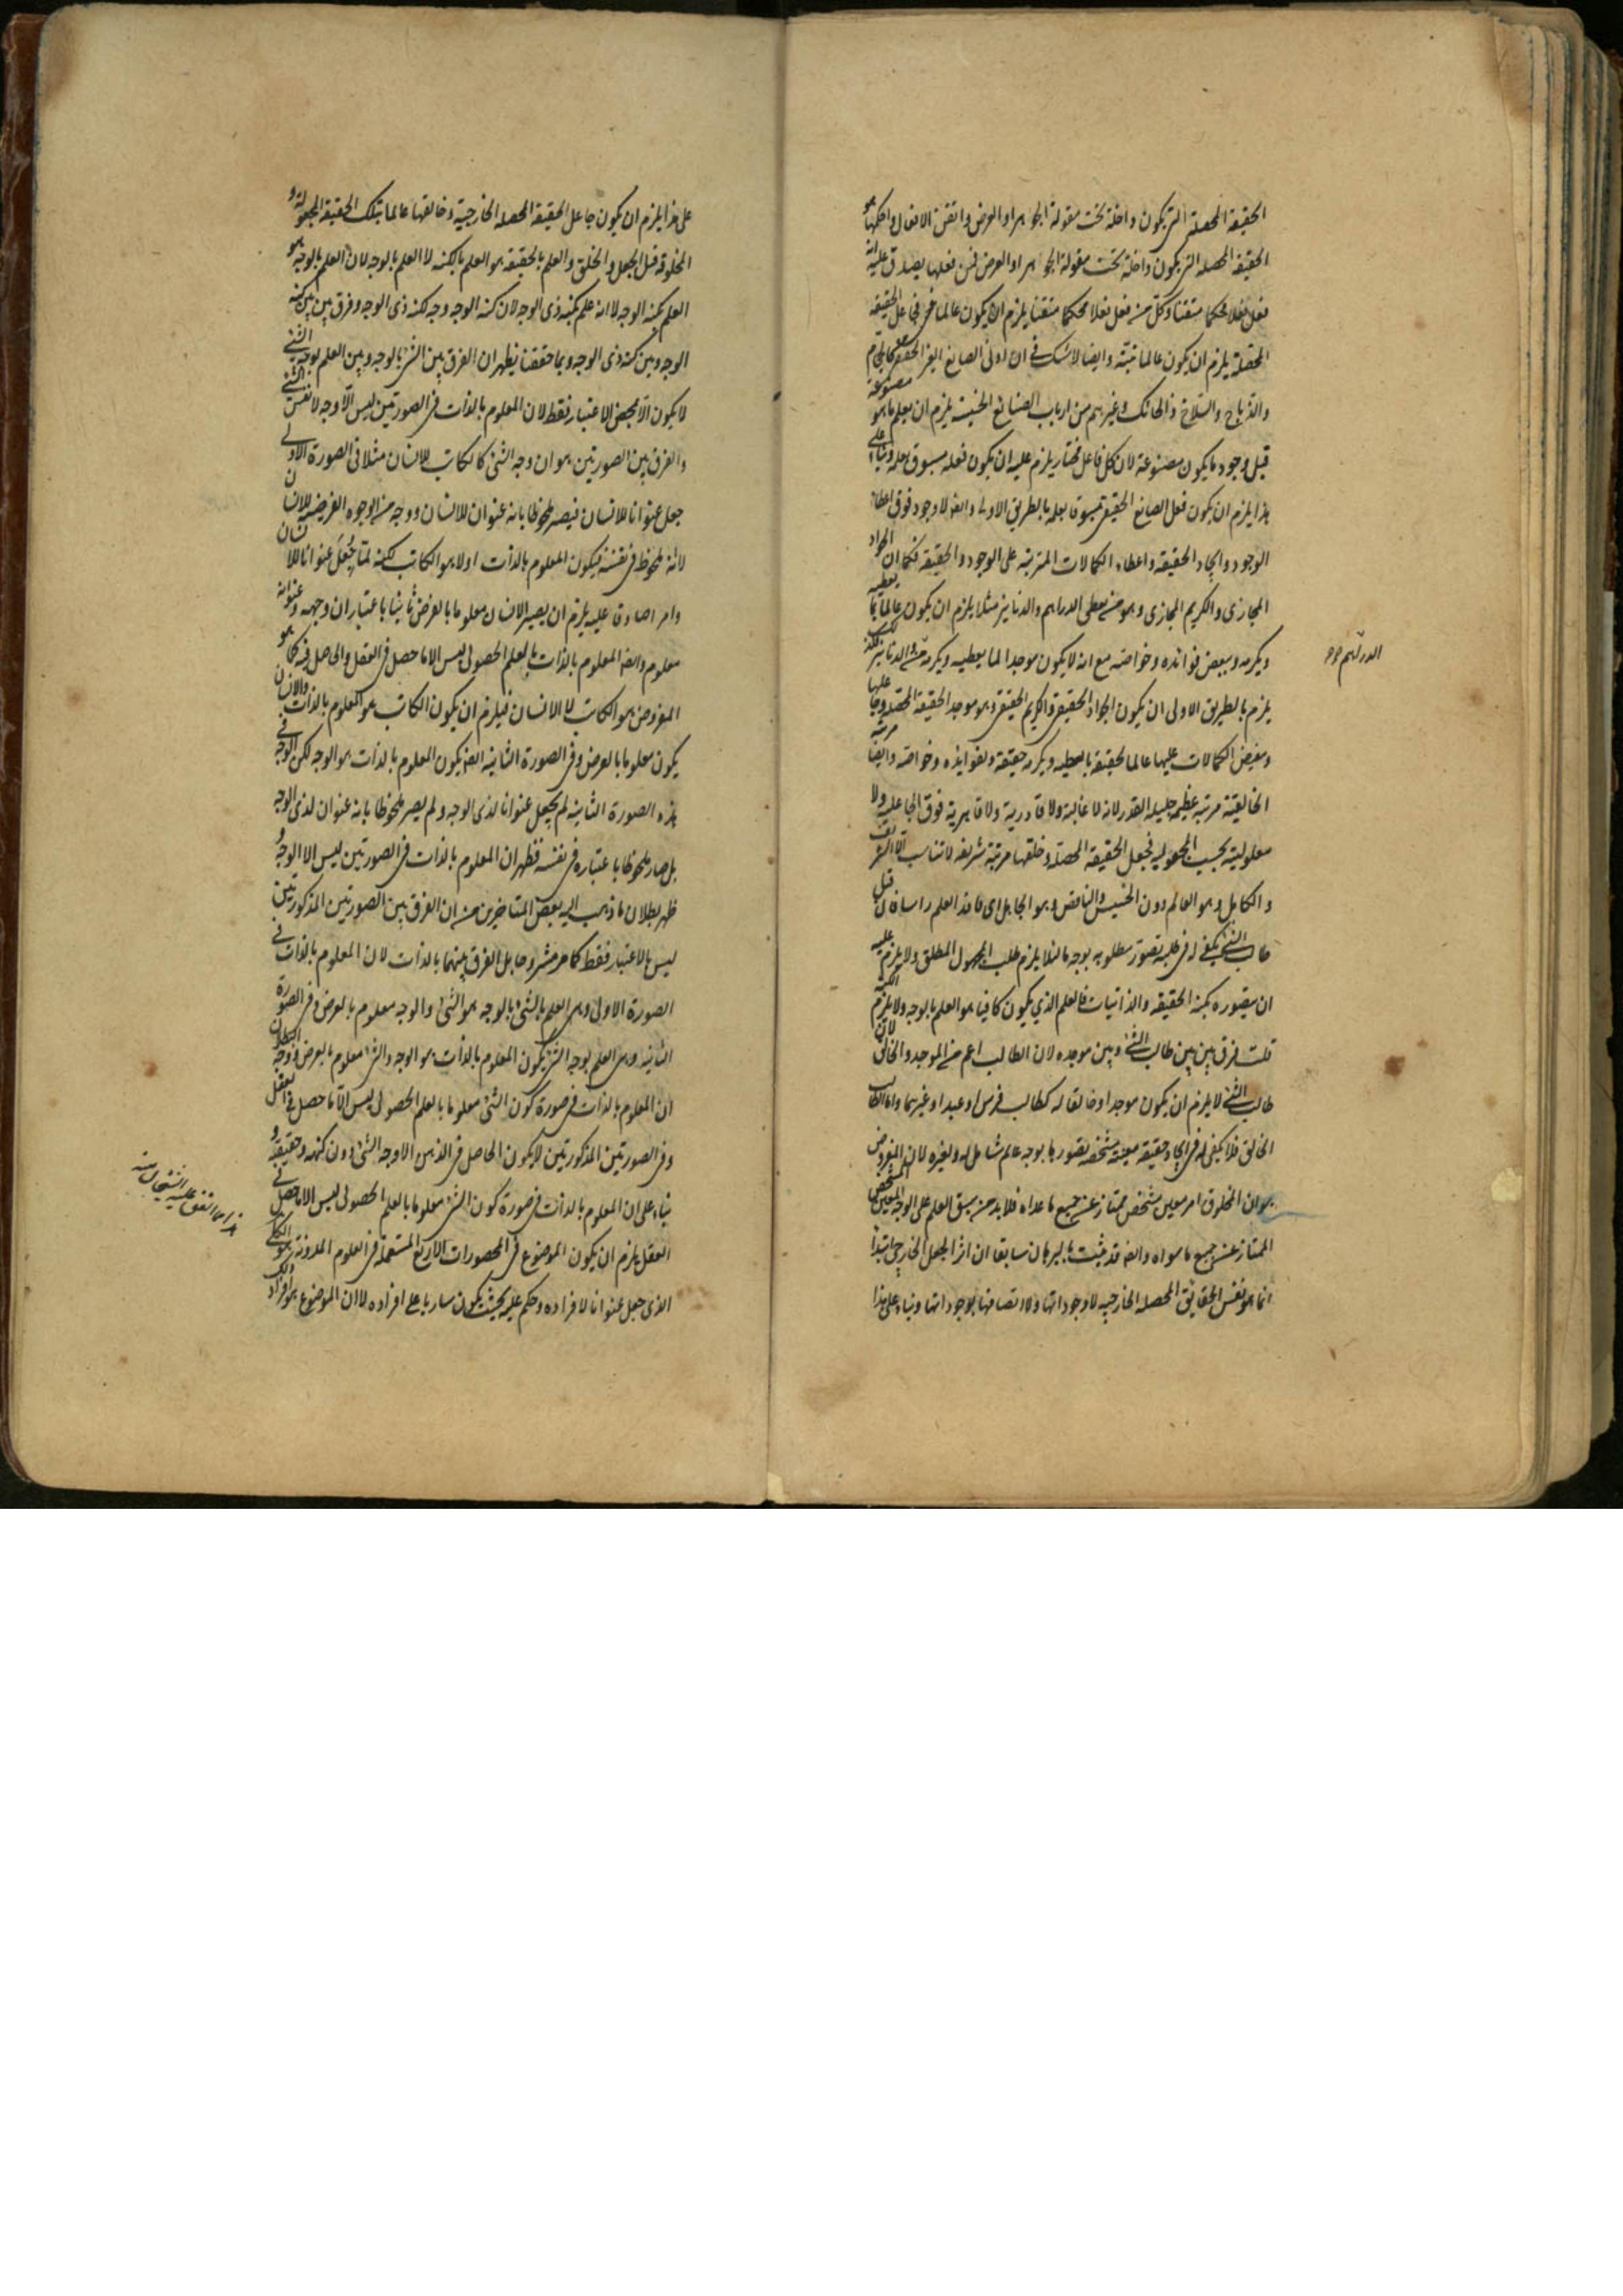 الحقيقة المحصلة التي يكون داخلة تحت مقولة الجواهر او العرض واتقن الافعال واحكمها هو
الحقيقة المحصلة التي يكون داخلة تحت مقولة الجواهر او العرض فمن فعلها يصدق عليه انه
فعل فعلا محكما متقنا وكل من فعل فعلا محكما متقنا يلزم ان يكون عالما فجاعل الحقيقة
المحصلة يلزم ان يكون عالما البتة وايضا لا شك في ان ادنى الصانع الغير الحقيقي كالحجام
والدباج والسلاخ والحائك وغيرهم من ارباب الصنايع الخسيسة يلزم ان يعلم ما هو مصنوعه
قبل وجود ما يكون مصنوعه لان كل فاعل مختار يلزم عليه ان يكون فعله مسبوق بعلمه وبناء على
هذا يلزم ان يكون فعل الصانع الحقيقي مسبوقا بعلمه بالطريق الاولى وايضا لا جود فوق اعطاء
الوجود وايجاد الحقيقة واعطاء الكمالات المترتبة على الوجود والحقيقة فكما ان الجواد
المجازي والكريم المجازي وهو من يعطي الدراهم والدنانير مثلا يلزم ان يكون عالما بما يعطيه
ويكرمه وببعض فوائده وخواصه مع انه لا يكون موجدا لما يعطيه ويكرمه من الدنانير كذلك
يلزم بالطريق الاولى ان يكون الجواد الحقيقي والكريم الحقيقي وهو موجد الحقيقة المحصلة وجاعلها
ومفيض الكمالات عليها عالما بحقيقة ما يعطيه ويكرمه حقيقة وبفوائده وخواصه وايضا مرتبة
الخالقية مرتبة عظيمة جليلة القدر لانه لا غالبية ولا قادرية ولا قاهرية فوق الجاعلية ولا
معلولية بحسب المجعولية فجعل الحقيقة المحصلة وخلقها مرتبة شريفة لا تناسب الا الشريف
والكامل وهو العالم دون الخسيس والناقص وهو الجاهل اي فاقد العلم راسا فان قيل
طالب الشيء يكفي له في طلبه تصور مطلوبه بوجه ما لئلا يلزم طلب المجهول المطلق ولا يلزم عليه
ان يتصوره بكنه الحقيقة والذاتيات فالعلم الذي يكون كافيا هو العلم بالوجه ولا يلزم الكنه
قلت فرق بين بين طالب الشيء وبين موجده لان الطالب اعم من الموجد والخالق لان
طالب الشيء لا يلزم ان يكون موجدا وخالقا له كطالب فرس او عبد او غيرهما واما الطالب
الخالق فلا يكفي له في ايجاد حقيقة معينة مشخصة تصورها بوجه عام شامل له ولغيره لان المفروض
هو ان المخلوق امر معين مشخص ممتاز عن جميع ما عداه فلا بد من سبق العلم على الوجه المعين المشخص
الممتاز عن جميع ما سواه وايضا قد ثبت بالبرهان سابقا ان اثر الجعل الخارجي ابتداء
انما هو نفس الحقائق المحصلة الخارجية لا وجوداتها ولا اتصافها بوجوداتها وبناء على هذا
الدراهم
على هذا يلزم ان يكون جاعل الحقيقة المحصلة الخارجية وخالقها عالما بتلك الحقيقة المجعولة و
المخلوقة قبل الجعل والخلق والعلم بالحقيقة هو العلم بالكنه لا العلم بالوجه لان العلم بالوجه هو
العلم بكنه الوجه لا انه علم بكنه ذي الوجه لان كنه الوجه وجه لكنه ذي الوجه وفرق بين بين كنه
الوجه وبين كنه ذي الوجه وبما حققنا يظهر ان الفرق بين الشيء بالوجه وبين العلم بوجه الشيء
لا يكون الا بمحض الاعتبار فقط لان المعلوم بالذات في الصورتين ليس الا وجه لا نفس الشيء
والفرق بين الصورتين هو ان وجه الشيء كالكاتب للانسان مثلا في الصورة الاولى
جعل عنوانا للانسان فيصير ملحوظا بانه عنوان للانسان ووجه من الوجوه العرضية للانسان
لانه ملحوظ في نفسه فيكون المعلوم بالذات اولا هو الكاتب لكنه لما جعل عنوانا للانسان
وامرا صادقا عليه يلزم ان يصير الانسان معلوما بالعرض ثانيا باعتبار ان وجهه وعنوانه
معلوم وايضا المعلوم بالذات بالعلم الحصولي ليس الا ما حصل في العقل والحاصل فيه كما هو
المفروض هو الكاتب لا الانسان فيلزم ان يكون الكاتب هو المعلوم بالذات والانسان
يكون معلوما بالعرض وفي الصورة الثانية ايضا يكون المعلوم بالذات هو الوجه لكن الوجه في
هذه الصورة الثانية لم يجعل عنوانا لذي الوجه ولم يصر ملحوظا بانه عنوان لذي الوجه
بل صار ملحوظا باعتباره في نفسه فظهر ان المعلوم بالذات في الصورتين ليس الا الوجه و
ظهر بطلان ما ذهب اليه بعض المتاخرين من ان الفرق بين الصورتين المذكورتين
ليس بالاعتبار فقط كما مر مشروحا بل الفرق بينهما بالذات لان المعلوم بالذات في
الصورة الاولى وهي العلم بالشيء بالوجه هو الشيء والوجه معلوم بالعرض وفي الصورة
الثانية وهي العلم بوجه الشيء يكون المعلوم بالذات هو الوجه والشيء معلوم بالعرض ووجه البطلان
ان المعلوم بالذات في صورة كون الشيء معلوما بالعلم الحصولي ليس الا ما حصل في العقل
وفي الصورتين المذكورتين لا يكون الحاصل في الذهن الا وجه الشيء دون كنهه وحقيقته و
بناء على ان المعلوم بالذات في صورة كون الشيء معلوما بالعلم الحصولي ليس الا ما حصل في
العقل يلزم ان يكون الموضوع في المحصورات الاربع المستعملة في العلوم المدونة هو الكلي
الذي جعل عنوانا لافراده وحكم عليه بحيث يكون ساريا على افراده لا ان الموضوع هو افراد ذلك